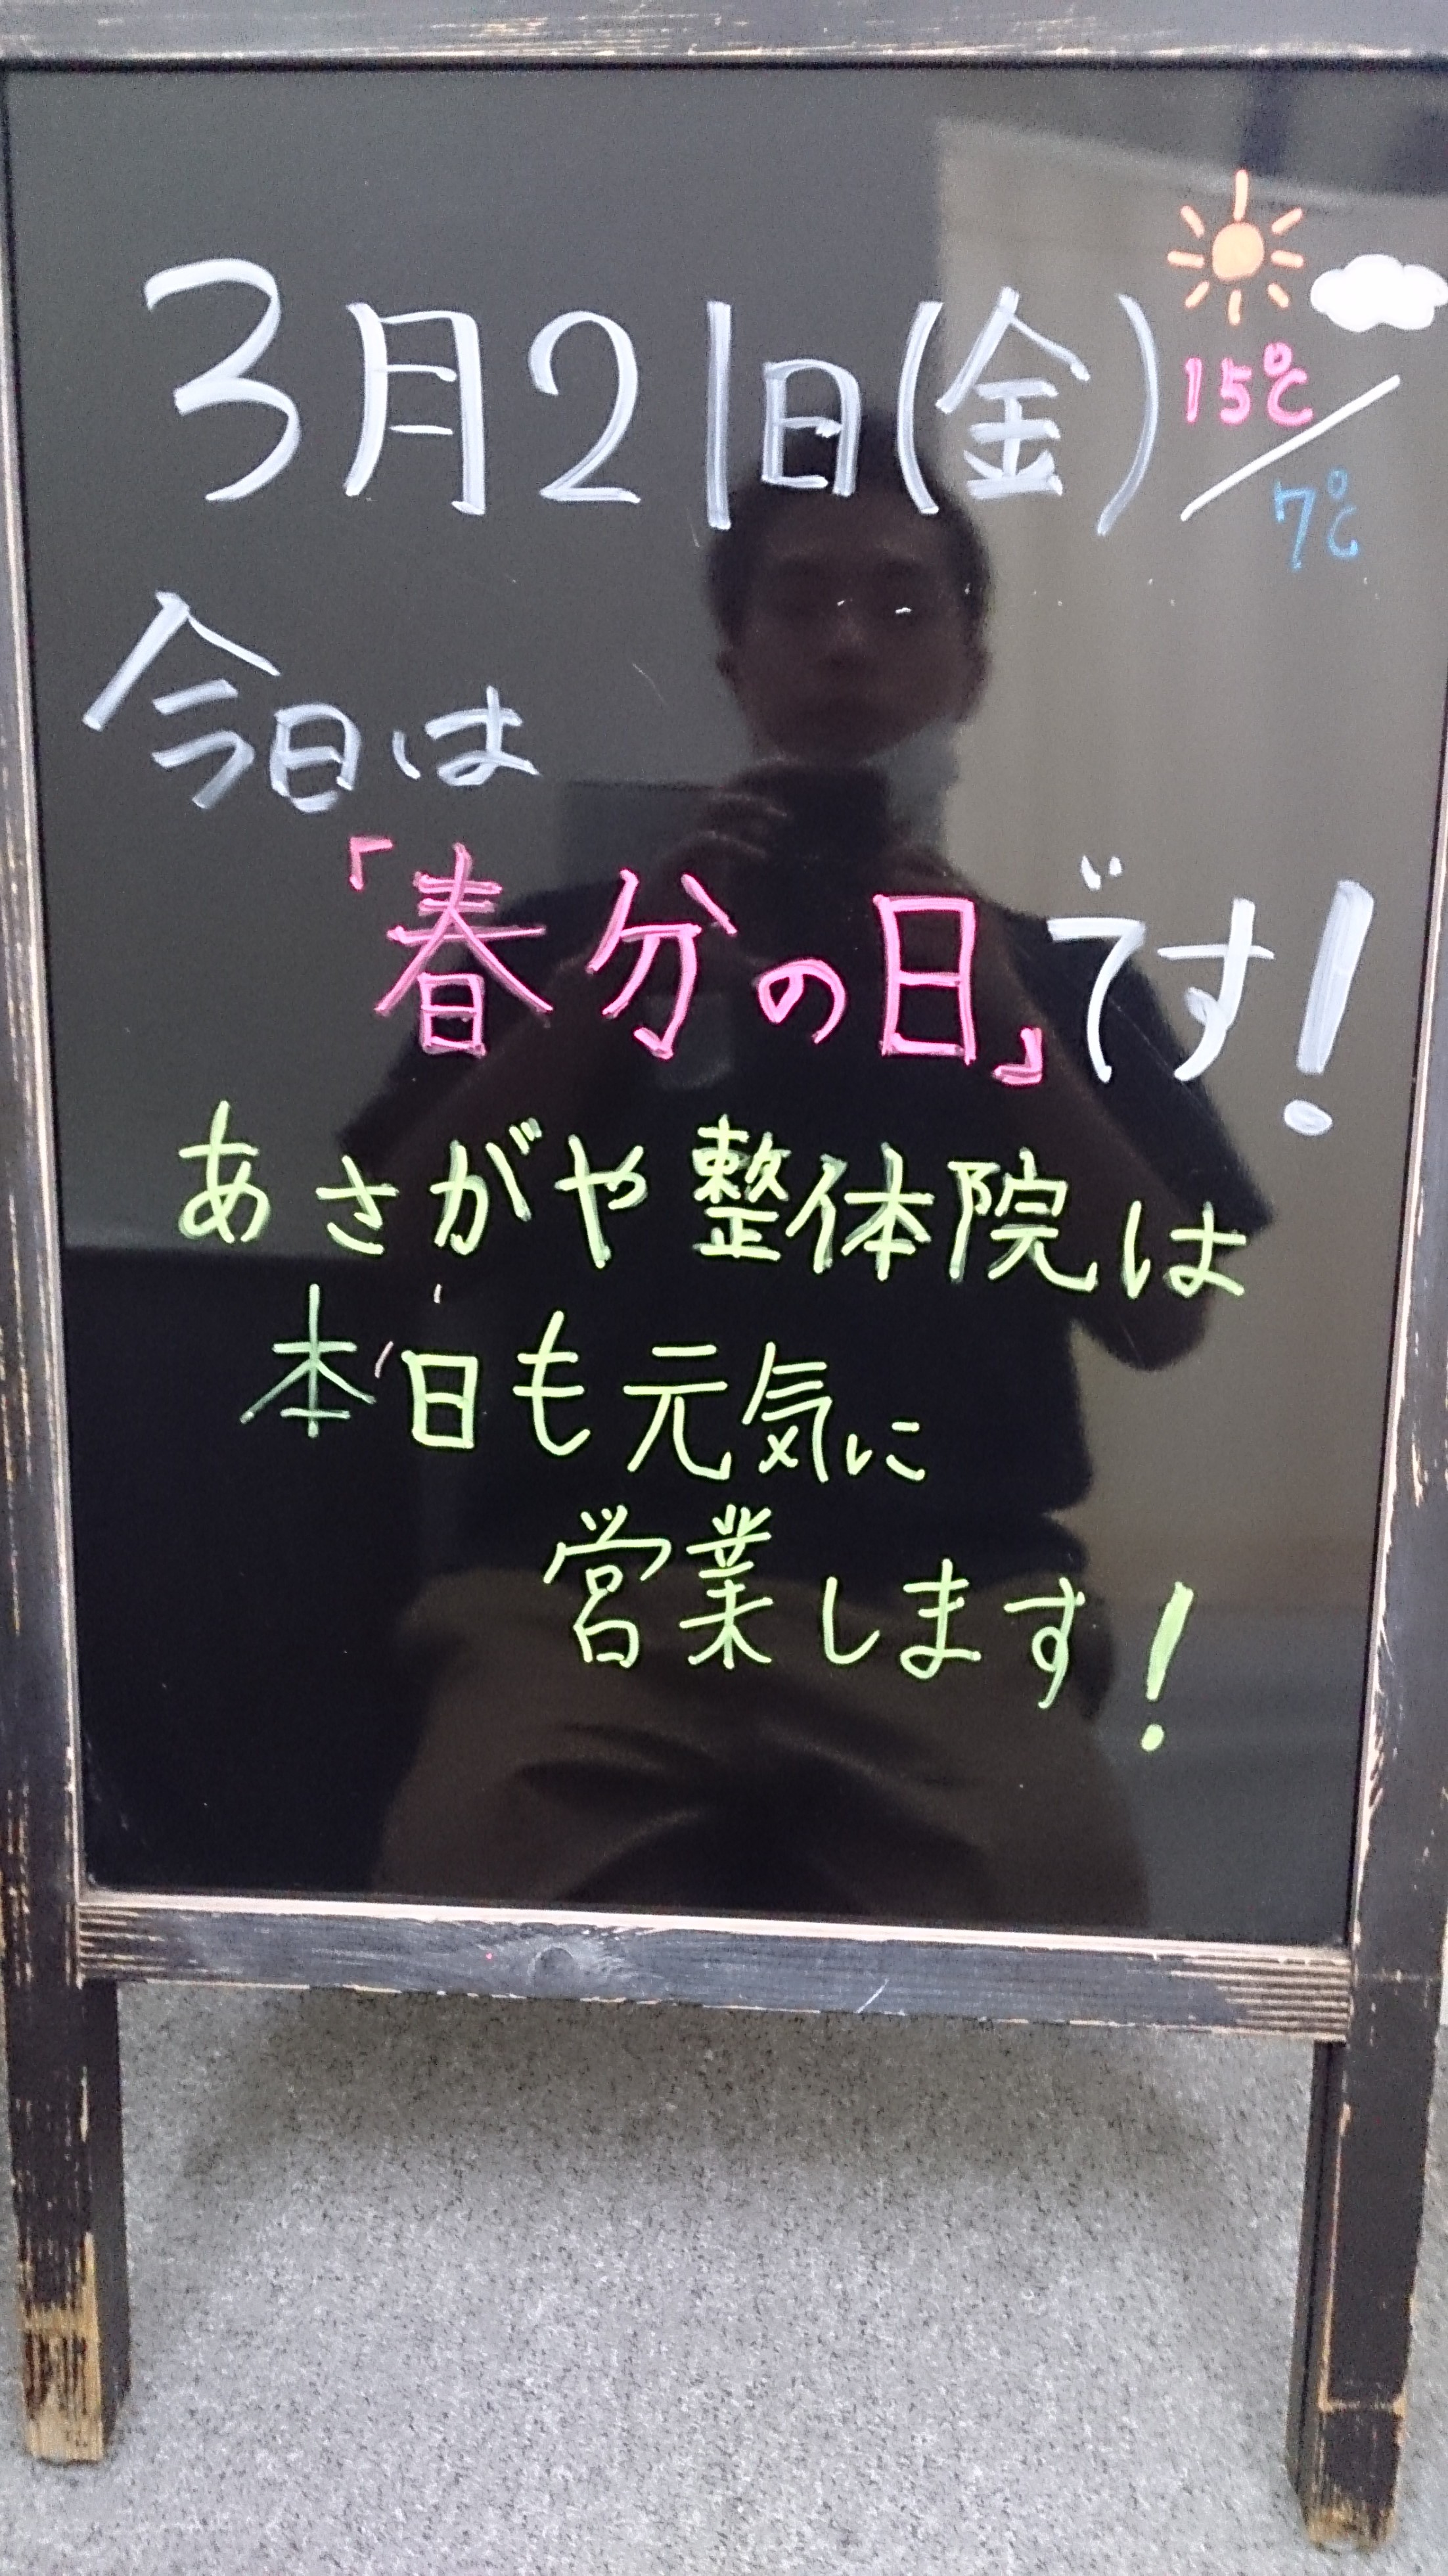 3月21日(金)
15℃/7℃
今日は
「春分の日」です!
あさがや整体院は
本日も元気に
営業します!